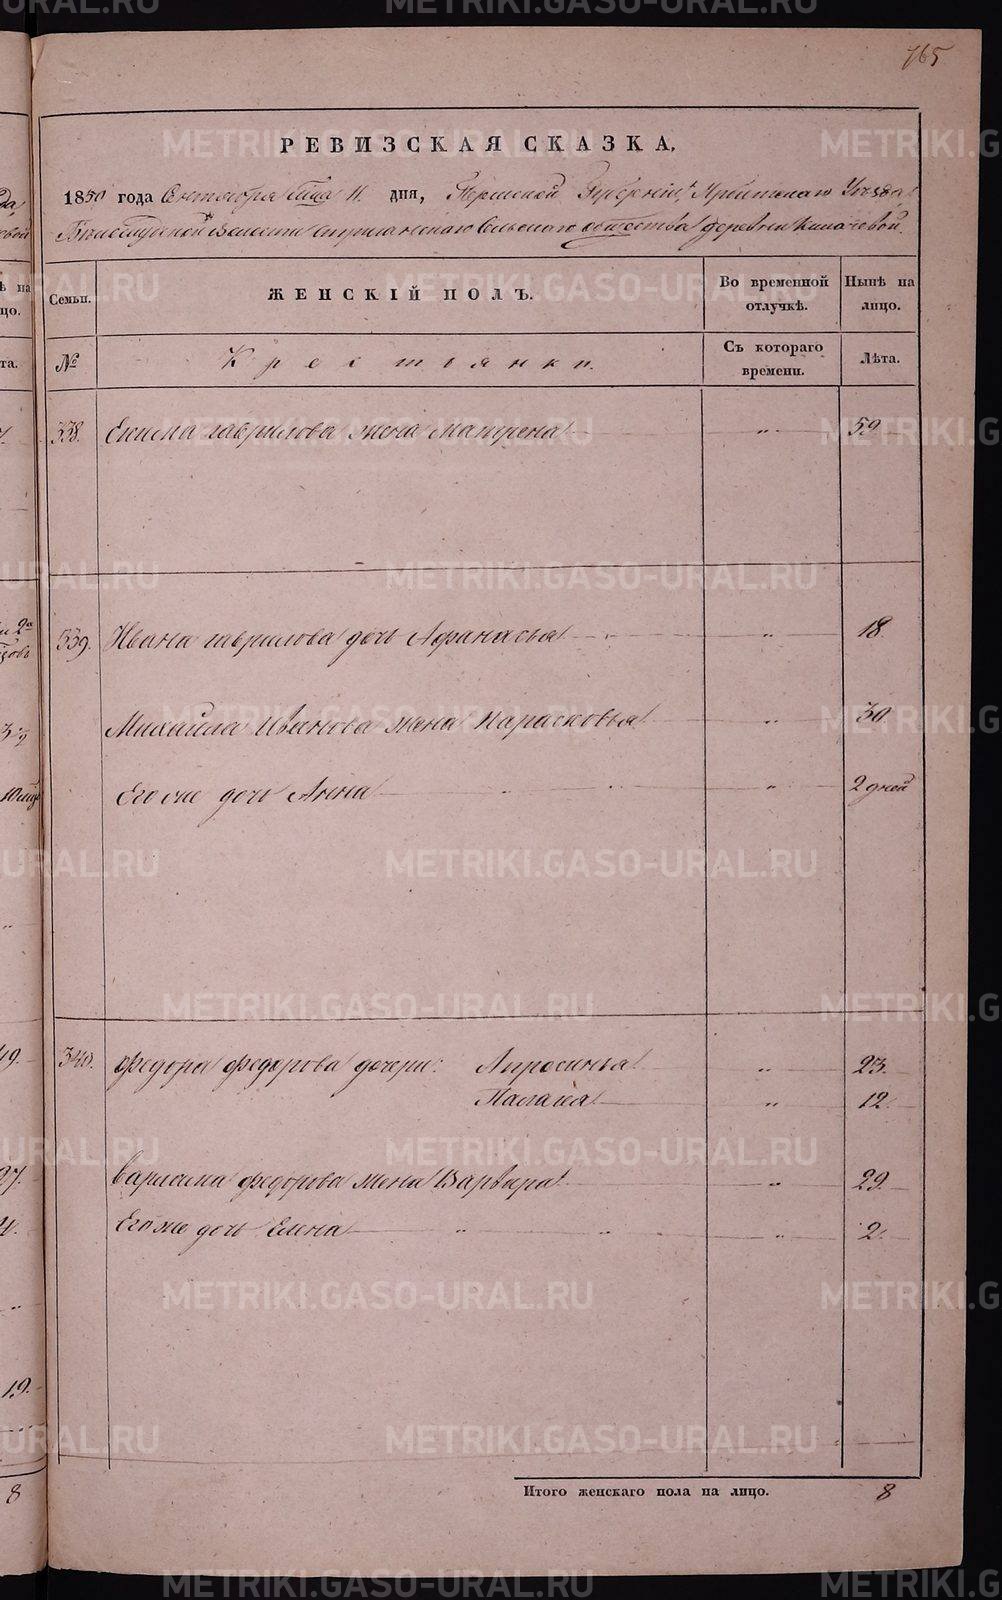 165
РЕВИЗСКАЯ СКАЗКА.
1850 года Сентября м-ца 11 дня, Пермской Губернии, Ирбитскаго Уезда,
Волости Сельскаго общества деревни
Семьи. ЖЕНСКІЙ ПОЛЪ. Во временной отлучкѣ. Нынѣ на лицо.
№ Крестьянки. Съ котораго времени. Лѣта.
338. Екима Гаврилова жена Матрена 59.
339. Ивана Гаврилова дочь Афанасья 18.
Михайла Иванова жена Парасковья 30.
Его же дочь Анна 2 дней
340. Федора Федорова дочери: Апросинья 23.
Палагея 12.
Федорова жена Варвара 29.
Его же дочь Елена 2.
Итого женскаго пола на лицо. 8
METRIKI.GASO-URAL.RU